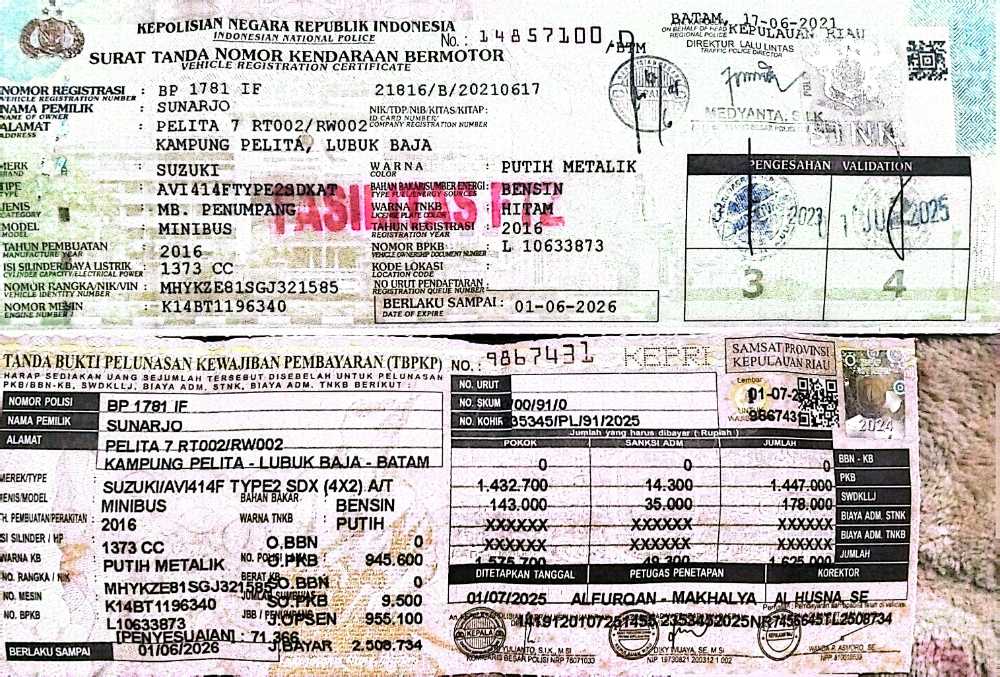 KEPOLISIAN NEGARA REPUBLIK INDONESIA
INDONESIAN NATIONAL POLICE
No.: 14857100 D
SURAT TANDA NOMOR KENDARAAN BERMOTOR
VEHICLE REGISTRATION CERTIFICATE
BATAM, 17-06-2021
ON BEHALF OF HEAD KEPULAUAN RIAU
REGIONAL POLICE
DIREKTUR LALU LINTAS
TRAFFIC POLICE DIRECTOR
MEDYANTA, S.I.K
NOMOR REGISTRASI : BP 1781 IF 21816/B/20210617
VEHICLE REGISTRATION NUMBER
NAMA PEMILIK : SUNARJO NIK/TDP/NIB/KITAS/KITAP :
NAME OF OWNER ID CARD NUMBER/
ALAMAT : PELITA 7 RT002/RW002 COMPANY REGISTRATION NUMBER
ADDRESS
KAMPUNG PELITA, LUBUK BAJA
MERK : SUZUKI WARNA : PUTIH METALIK
BRAND COLOR
TIPE : AVI414FTYPE2SDXAT BAHAN BAKAR/SUMBER ENERGI : BENSIN
TYPE TYPE FUEL/ENERGY SOURCES
JENIS : MB. PENUMPANG WARNA TNKB : HITAM
CATEGORY LICENSE PLATE COLOR
MODEL : MINIBUS TAHUN REGISTRASI : 2016
MODEL REGISTRATION YEAR
TAHUN PEMBUATAN : 2016 NOMOR BPKB : L 10633873
MANUFACTURE YEAR VEHICLE OWNERSHIP DOCUMENT NUMBER
ISI SILINDER/DAYA LISTRIK : 1373 CC KODE LOKASI :
CYLINDER CAPACITY/ELECTRICAL POWER LOCATION CODE
NOMOR RANGKA/NIK/VIN : MHYKZE81SGJ321585 NO URUT PENDAFTARAN :
VEHICLE IDENTITY NUMBER REGISTRATION QUEUE NUMBER
NOMOR MESIN : K14BT1196340 BERLAKU SAMPAI : 01-06-2026
ENGINE NUMBER DATE OF EXPIRE
PENGESAHAN VALIDATION
JUL 2025
3 4
TANDA BUKTI PELUNASAN KEWAJIBAN PEMBAYARAN (TBPKP)
HARAP SEDIAKAN UANG SEJUMLAH TERSEBUT DISEBELAH UNTUK PELUNASAN
PKB/BBN-KB, SWDKLLJ, BIAYA ADM. STNK, BIAYA ADM. TNKB BERIKUT :
NO.: 9867431 KEPRI
SAMSAT PROVINSI
KEPULAUAN RIAU
Lembar
2024
NOMOR POLISI BP 1781 IF
NAMA PEMILIK SUNARJO
ALAMAT PELITA 7 RT002/RW002
KAMPUNG PELITA - LUBUK BAJA - BATAM
NO. URUT
NO. SKUM 00/91/0
NO. KOHIR 35345/PL/91/2025
Jumlah yang harus dibayar (Rupiah)
POKOK SANKSI ADM JUMLAH
0 0 0 BBN - KB
1.432.700 14.300 1.447.000 PKB
143.000 35.000 178.000 SWDKLLJ
XXXXXX XXXXXX XXXXXX BIAYA ADM. STNK
XXXXXX XXXXXX XXXXXX BIAYA ADM. TNKB
1.575.700 49.300 1.625.000 JUMLAH
MEREK/TYPE : SUZUKI/AVI414F TYPE2 SDX (4X2) A/T
JENIS/MODEL : MINIBUS BAHAN BAKAR : BENSIN
TH. PEMBUATAN/PERAKITAN : 2016 WARNA TNKB : PUTIH
ISI SILINDER / HP : 1373 CC O.BBN 0
WARNA KB : PUTIH METALIK O.PKB 945.600
NO. RANGKA / NIK : MHYKZE81SGJ321585 SO.BBN 0
NO. MESIN : K14BT1196340 SO.PKB 9.500
NO. BPKB : L10633873 J.OPSEN 955.100
[PENYESUAIAN : 71.366
BERLAKU SAMPAI 01/06/2026 J.BAYAR 2.508.734
DITETAPKAN TANGGAL PETUGAS PENETAPAN KOREKTOR
01/07/2025 ALFURQAN - MAKHALYA AL HUSNA, SE